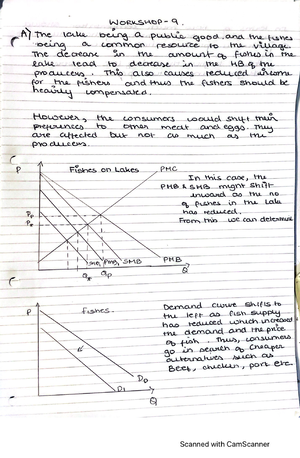 WORKSHOP-9.
A) The lake being a public good and the fishes
being a common resource to the village.
The decrease in the amount of fishes in the
lake lead to decrease in the MB of the
producers. This also causes reduced income
for the fishers and thus the fishers should be
heavily compensated.
However, the consumers would shift their
preferences to other meat and eggs. They
are affected but not as much as the
producers.
P
Fishes on Lakes
PMC
In this case, the
PMB & SMB might shift
inward as the no
of fishes in the lake
has reduced.
From this we can determine
SMB
PMB
Q
P
Fishes.
Demand curve shifts to
the left as fish supply
has reduced which increased
the demand and the price
of fish. Thus, consumers
go in search of cheaper
alternatives such as
Beef, chicken, pork etc.
D0
D1
Q
Scanned with CamScanner